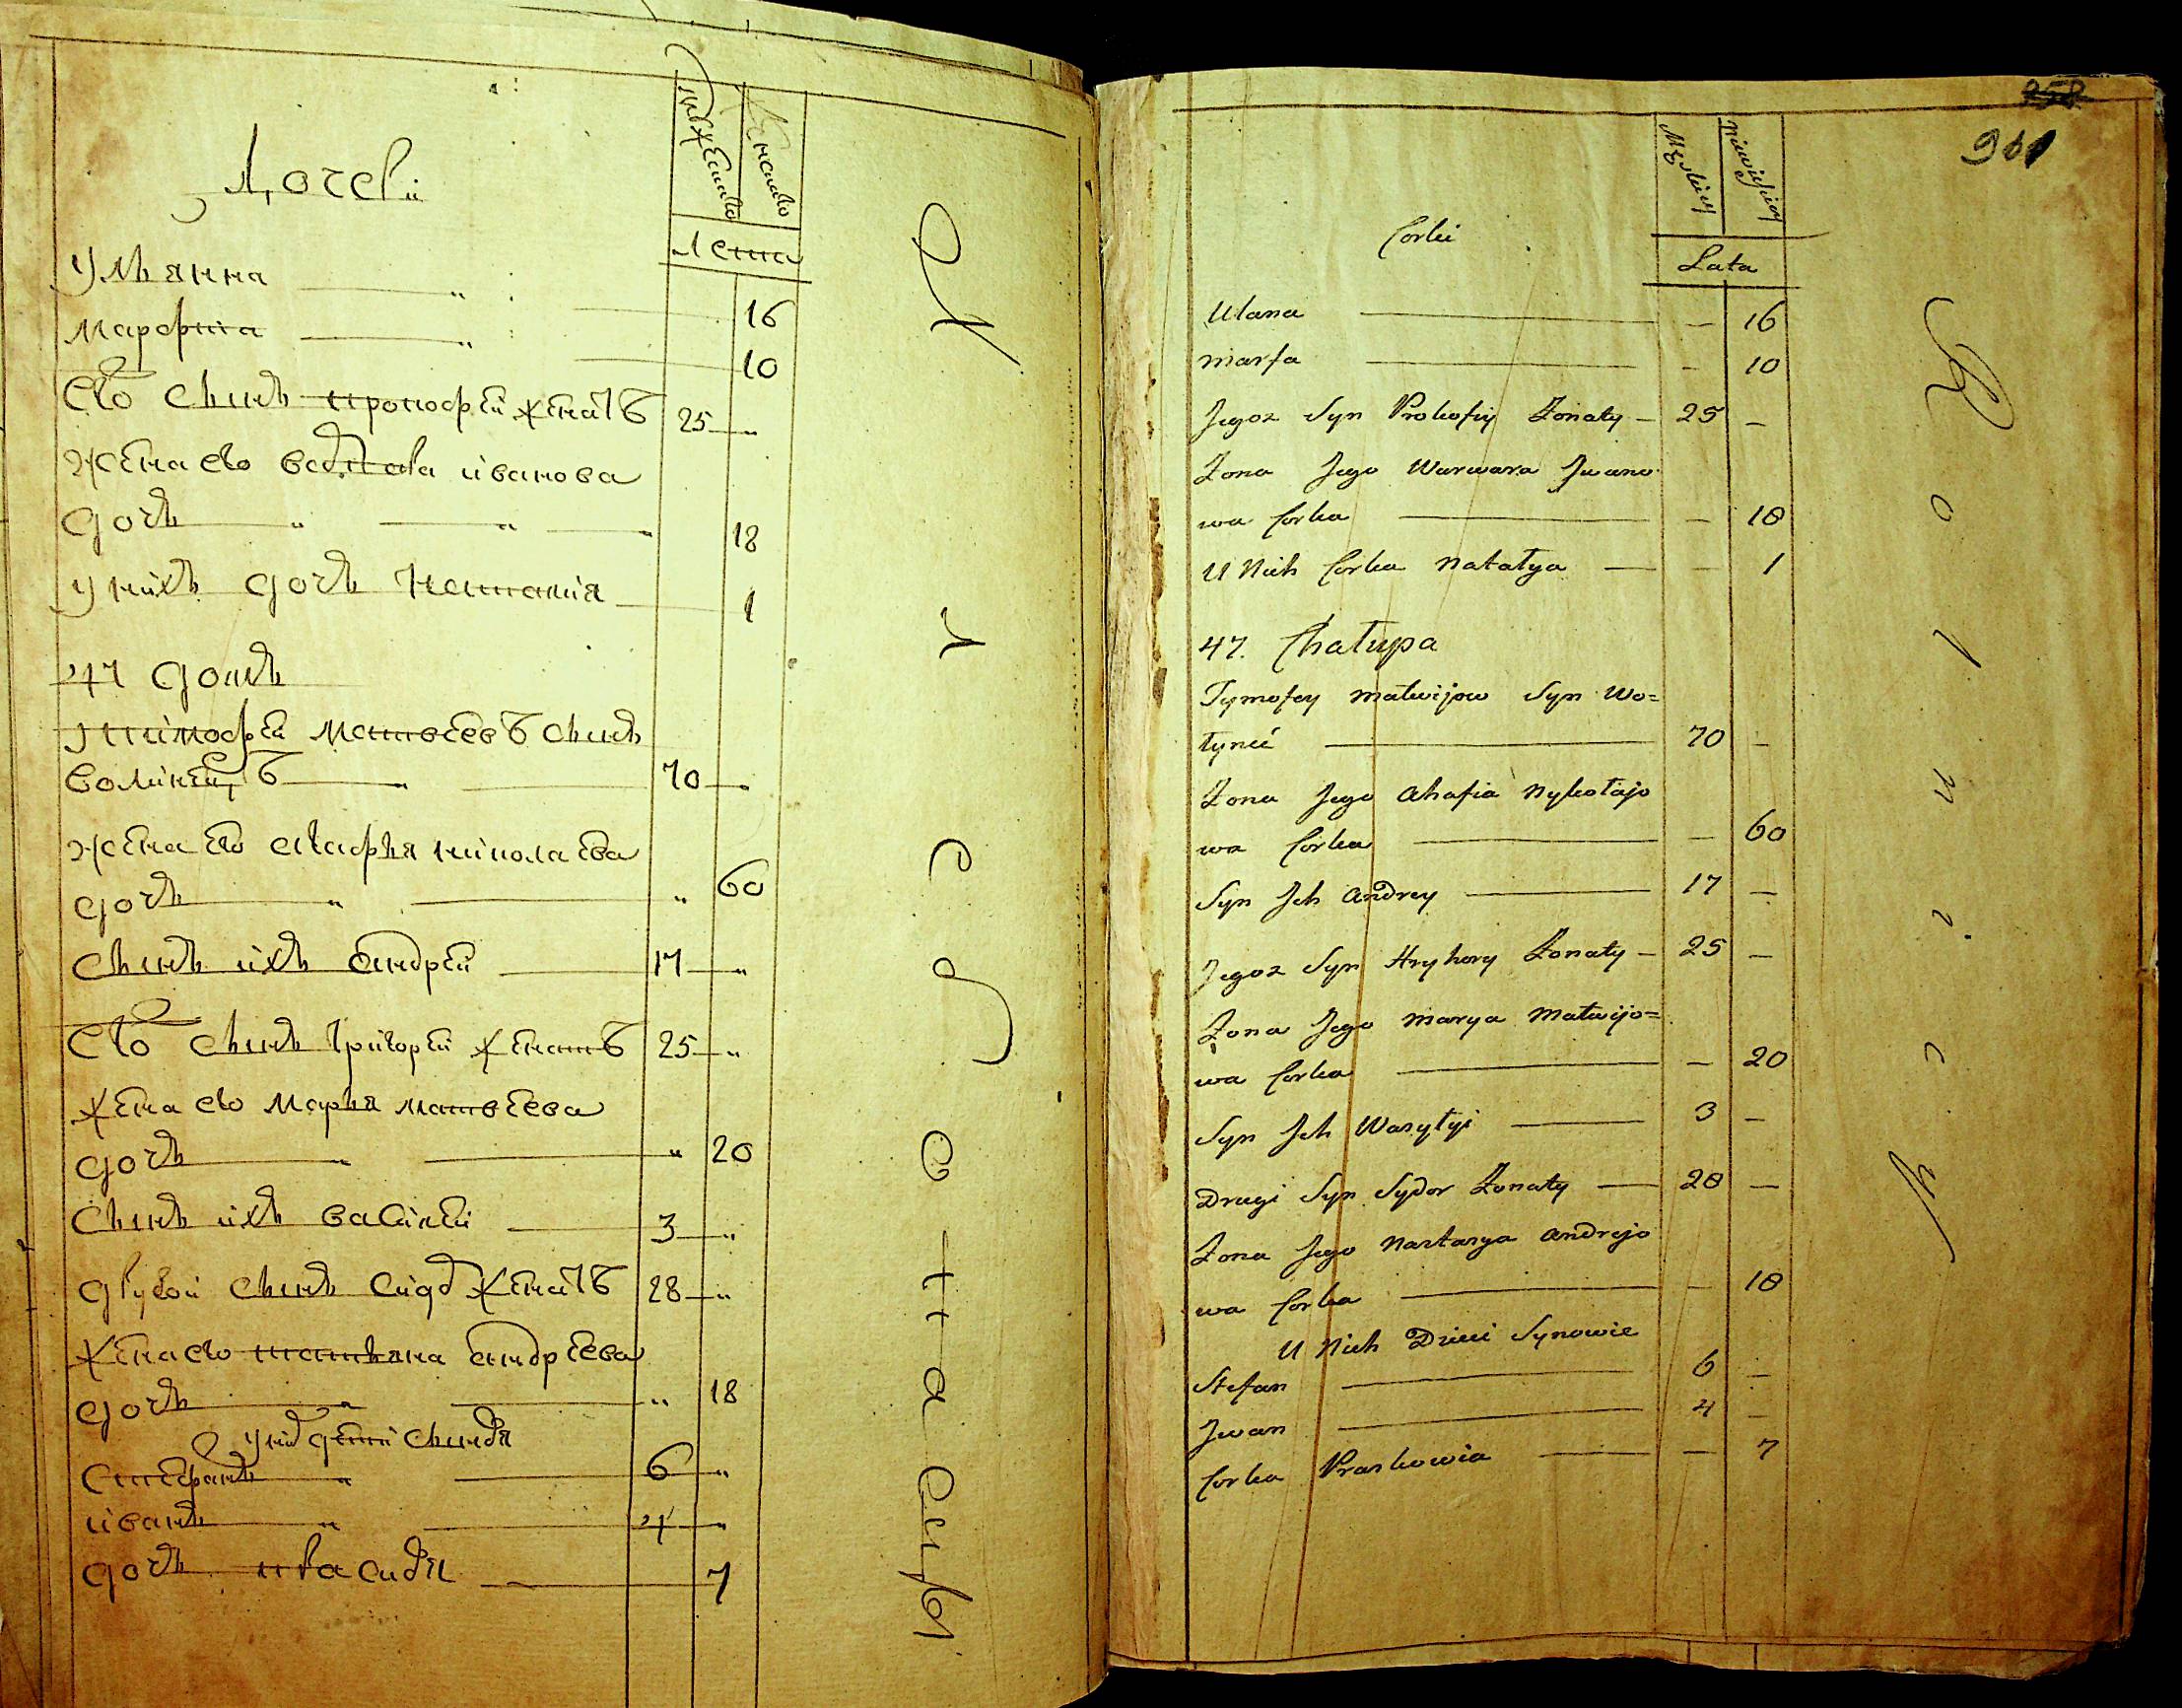 Дочери
мужеска
женска
лета
Ульянна 16
Марфта 10
Его сынъ прокофей женатъ 25
Жена его варвара иванова
дочь 18
У нихъ дочь Наталiя 1
47 домъ
тимофей Матвеевъ сынъ
волинецъ 70
жена его агафья николаева
дочь 60
Сынъ ихъ андрей 17
Его сынъ григорей женатъ 25
жена его Марья матвеева
дочь 20
Сынъ ихъ василей 3
другой сынъ сидоръ женатъ 28
Жена его татьяна андреева
дочь 18
у нихъ дети сыновя
Стефанъ 6
иванъ 4
дочь параскевiя 7
958
961
Męzkiey
Niewieściey
Corki
Lata
Ulana — 16
marfa — 10
Jegoz Syn Prokofiy Zonaty — 25 —
Zona Jego Warwara Jwano
wa Corka — 18
U Nich Corka Natalya — 1
47. Chałupa
Tymofey matwijow Syn Wo=
łyneć 70 —
Zona Jego Ahafia Nykołajo
wa Corka — 60
Syn Jch Andrey 17 —
Jegoz Syn Hryhory Zonaty — 25 —
Zona Jego Marya Matwijo=
wa Corka — 20
Syn Jch Wasyłyi 3 —
Drugi Syn Sydor Zonaty — 28 —
Zona Jego Nastasya Andrejo
wa Corka — 18
U Nich Dzieci Synowie
Stefan 6 —
Jwan 4 —
Corka Praskowia — 7
R o l n i c y